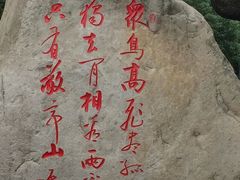 眾鳥高飛盡孤
獨去閒相看兩
只有敬亭山